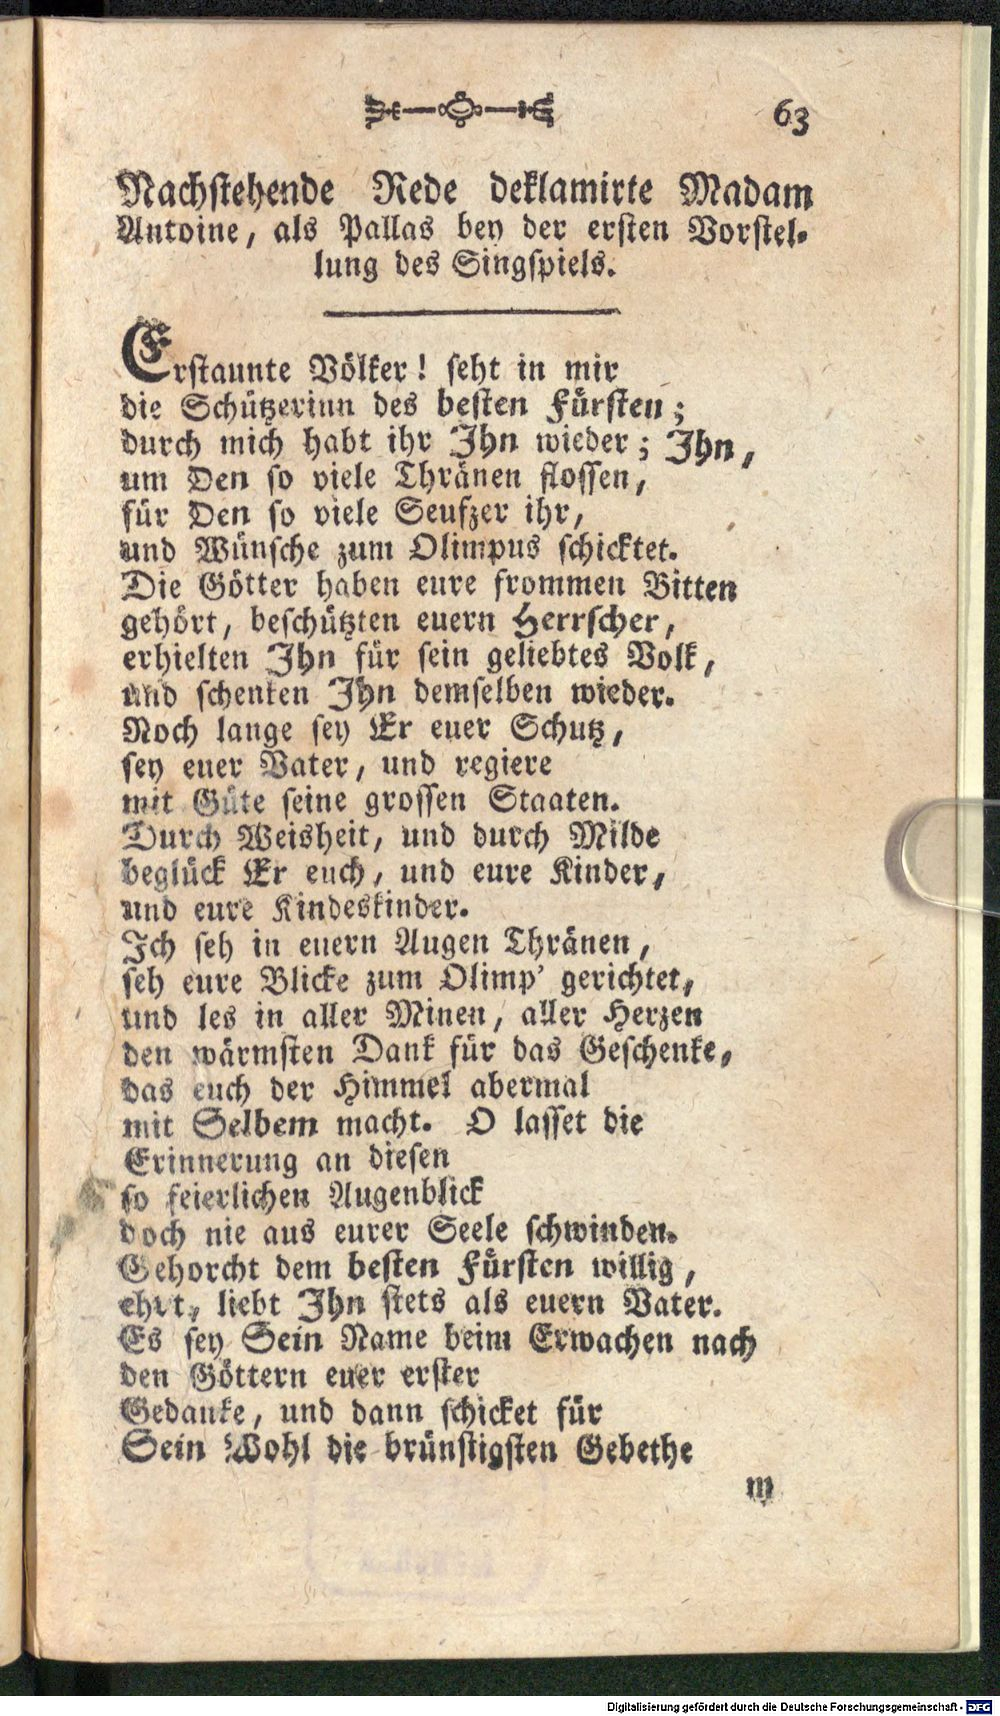 63
Nachstehende Rede deklamirte Madam
Antoine, als Pallas bey der ersten Vorstel-
lung des Singspiels.
Erstaunte Völker! seht in mir
die Schützerinn des besten Fürsten;
durch mich habt ihr Ihn wieder; Ihn,
um Den so viele Thränen flossen,
für Den so viele Seufzer ihr,
und Wünsche zum Olimpus schicktet.
Die Götter haben eure frommen Bitten
gehört, beschützten euern Herrscher,
erhielten Ihn für sein geliebtes Volk,
und schenken Ihn demselben wieder.
Noch lange sey Er euer Schutz,
sey euer Vater, und regiere
mit Güte seine grossen Staaten.
Durch Weisheit, und durch Milde
beglück Er euch, und eure Kinder,
und eure Kindeskinder.
Ich seh in euern Augen Thränen,
seh eure Blicke zum Olimp' gerichtet,
und les in aller Minen, aller Herzen
den wärmsten Dank für das Geschenke,
das euch der Himmel abermal
mit Selbem macht. O lasset die
Erinnerung an diesen
so feierlichen Augenblick
doch nie aus eurer Seele schwinden.
Gehorcht dem besten Fürsten willig,
ehrt, liebt Ihn stets als euern Vater.
Es sey Sein Name beim Erwachen nach
den Göttern euer erster
Gedanke, und dann schicket für
Sein Wohl die brünstigsten Gebethe
Digitalisierung gefördert durch die Deutsche Forschungsgemeinschaft - DFG